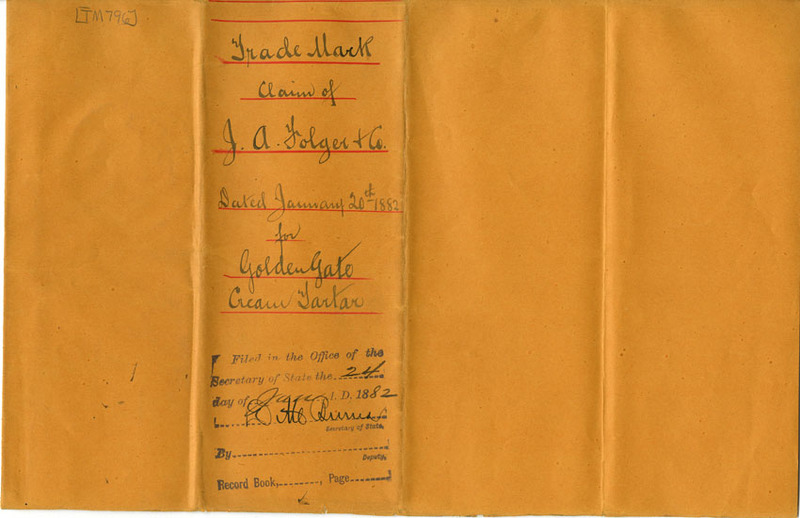 [TM796]
Trade Mark
Claim of
J. A. Folger & Co.
Dated January 20th 1882
for
Golden Gate
Cream Tartar
Filed in the Office of the
Secretary of State the 24
day of Jan A. D. 1882
Secretary of State.
By
Deputy.
Record Book, , Page